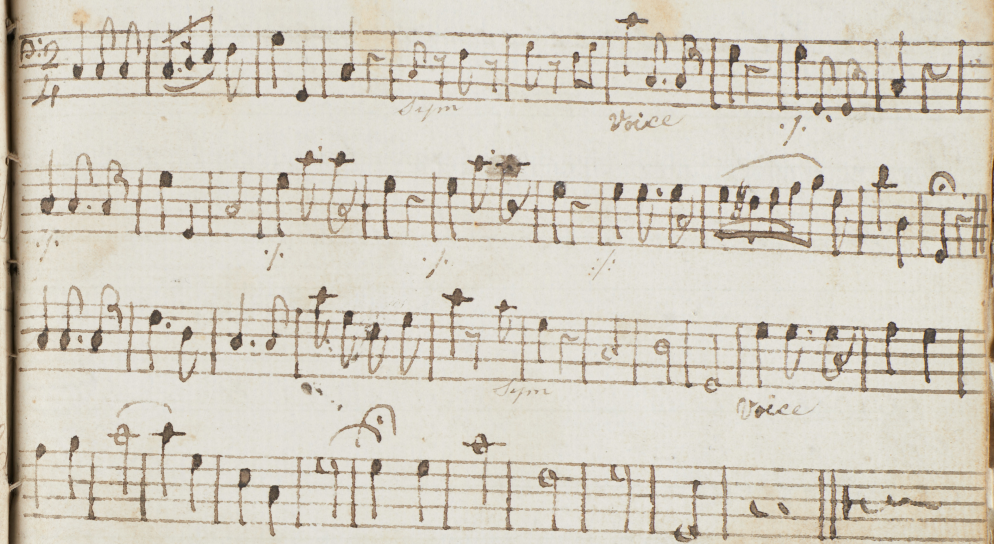 2
4
Sym Voice
Sym Voice